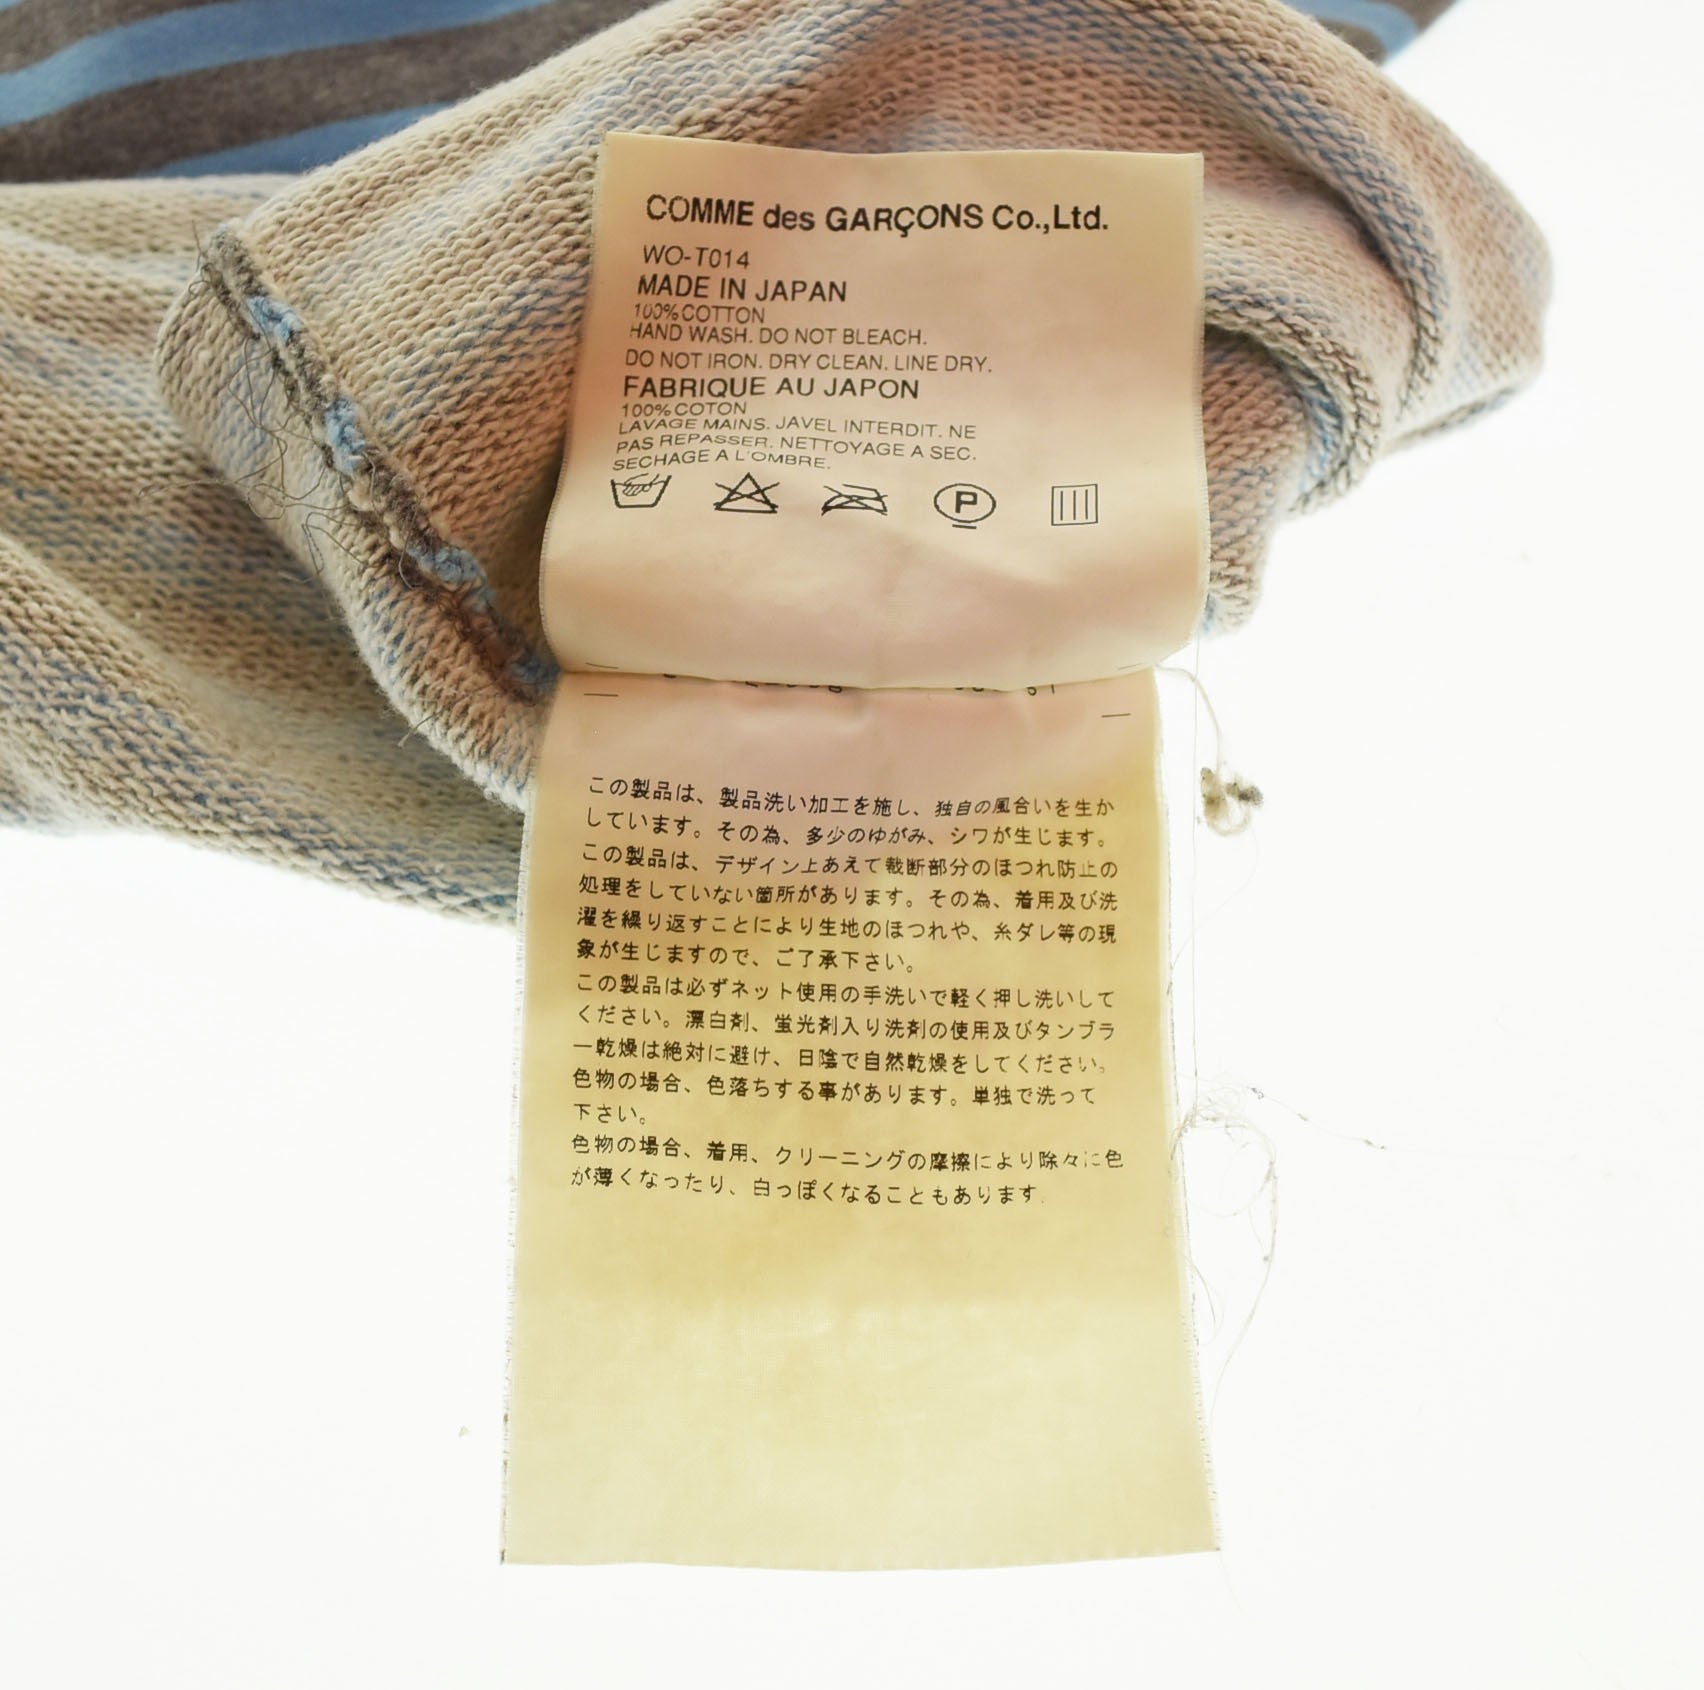 COMME des GARÇONS Co.,Ltd.
WO-T014
MADE IN JAPAN
100%COTTON
HAND WASH. DO NOT BLEACH.
DO NOT IRON. DRY CLEAN. LINE DRY.
FABRIQUE AU JAPON
100%COTON
LAVAGE MAINS. JAVEL INTERDIT. NE
PAS REPASSER. NETTOYAGE A SEC.
SECHAGE A L'OMBRE.
P
この製品は、製品洗い加工を施し、独自の風合いを生か
しています。その為、多少のゆがみ、シワが生じます。
この製品は、デザイン上あえて裁断部分のほつれ防止の
処理をしていない箇所があります。その為、着用及び洗
濯を繰り返すことにより生地のほつれや、糸ダレ等の現
象が生じますので、ご了承下さい。
この製品は必ずネット使用の手洗いで軽く押し洗いして
ください。漂白剤、蛍光剤入り洗剤の使用及びタンブラ
ー乾燥は絶対に避け、日陰で自然乾燥をしてください。
色物の場合、色落ちする事があります。単独で洗って
下さい。
色物の場合、着用、クリーニングの摩擦により除々に色
が薄くなったり、白っぽくなることもあります.